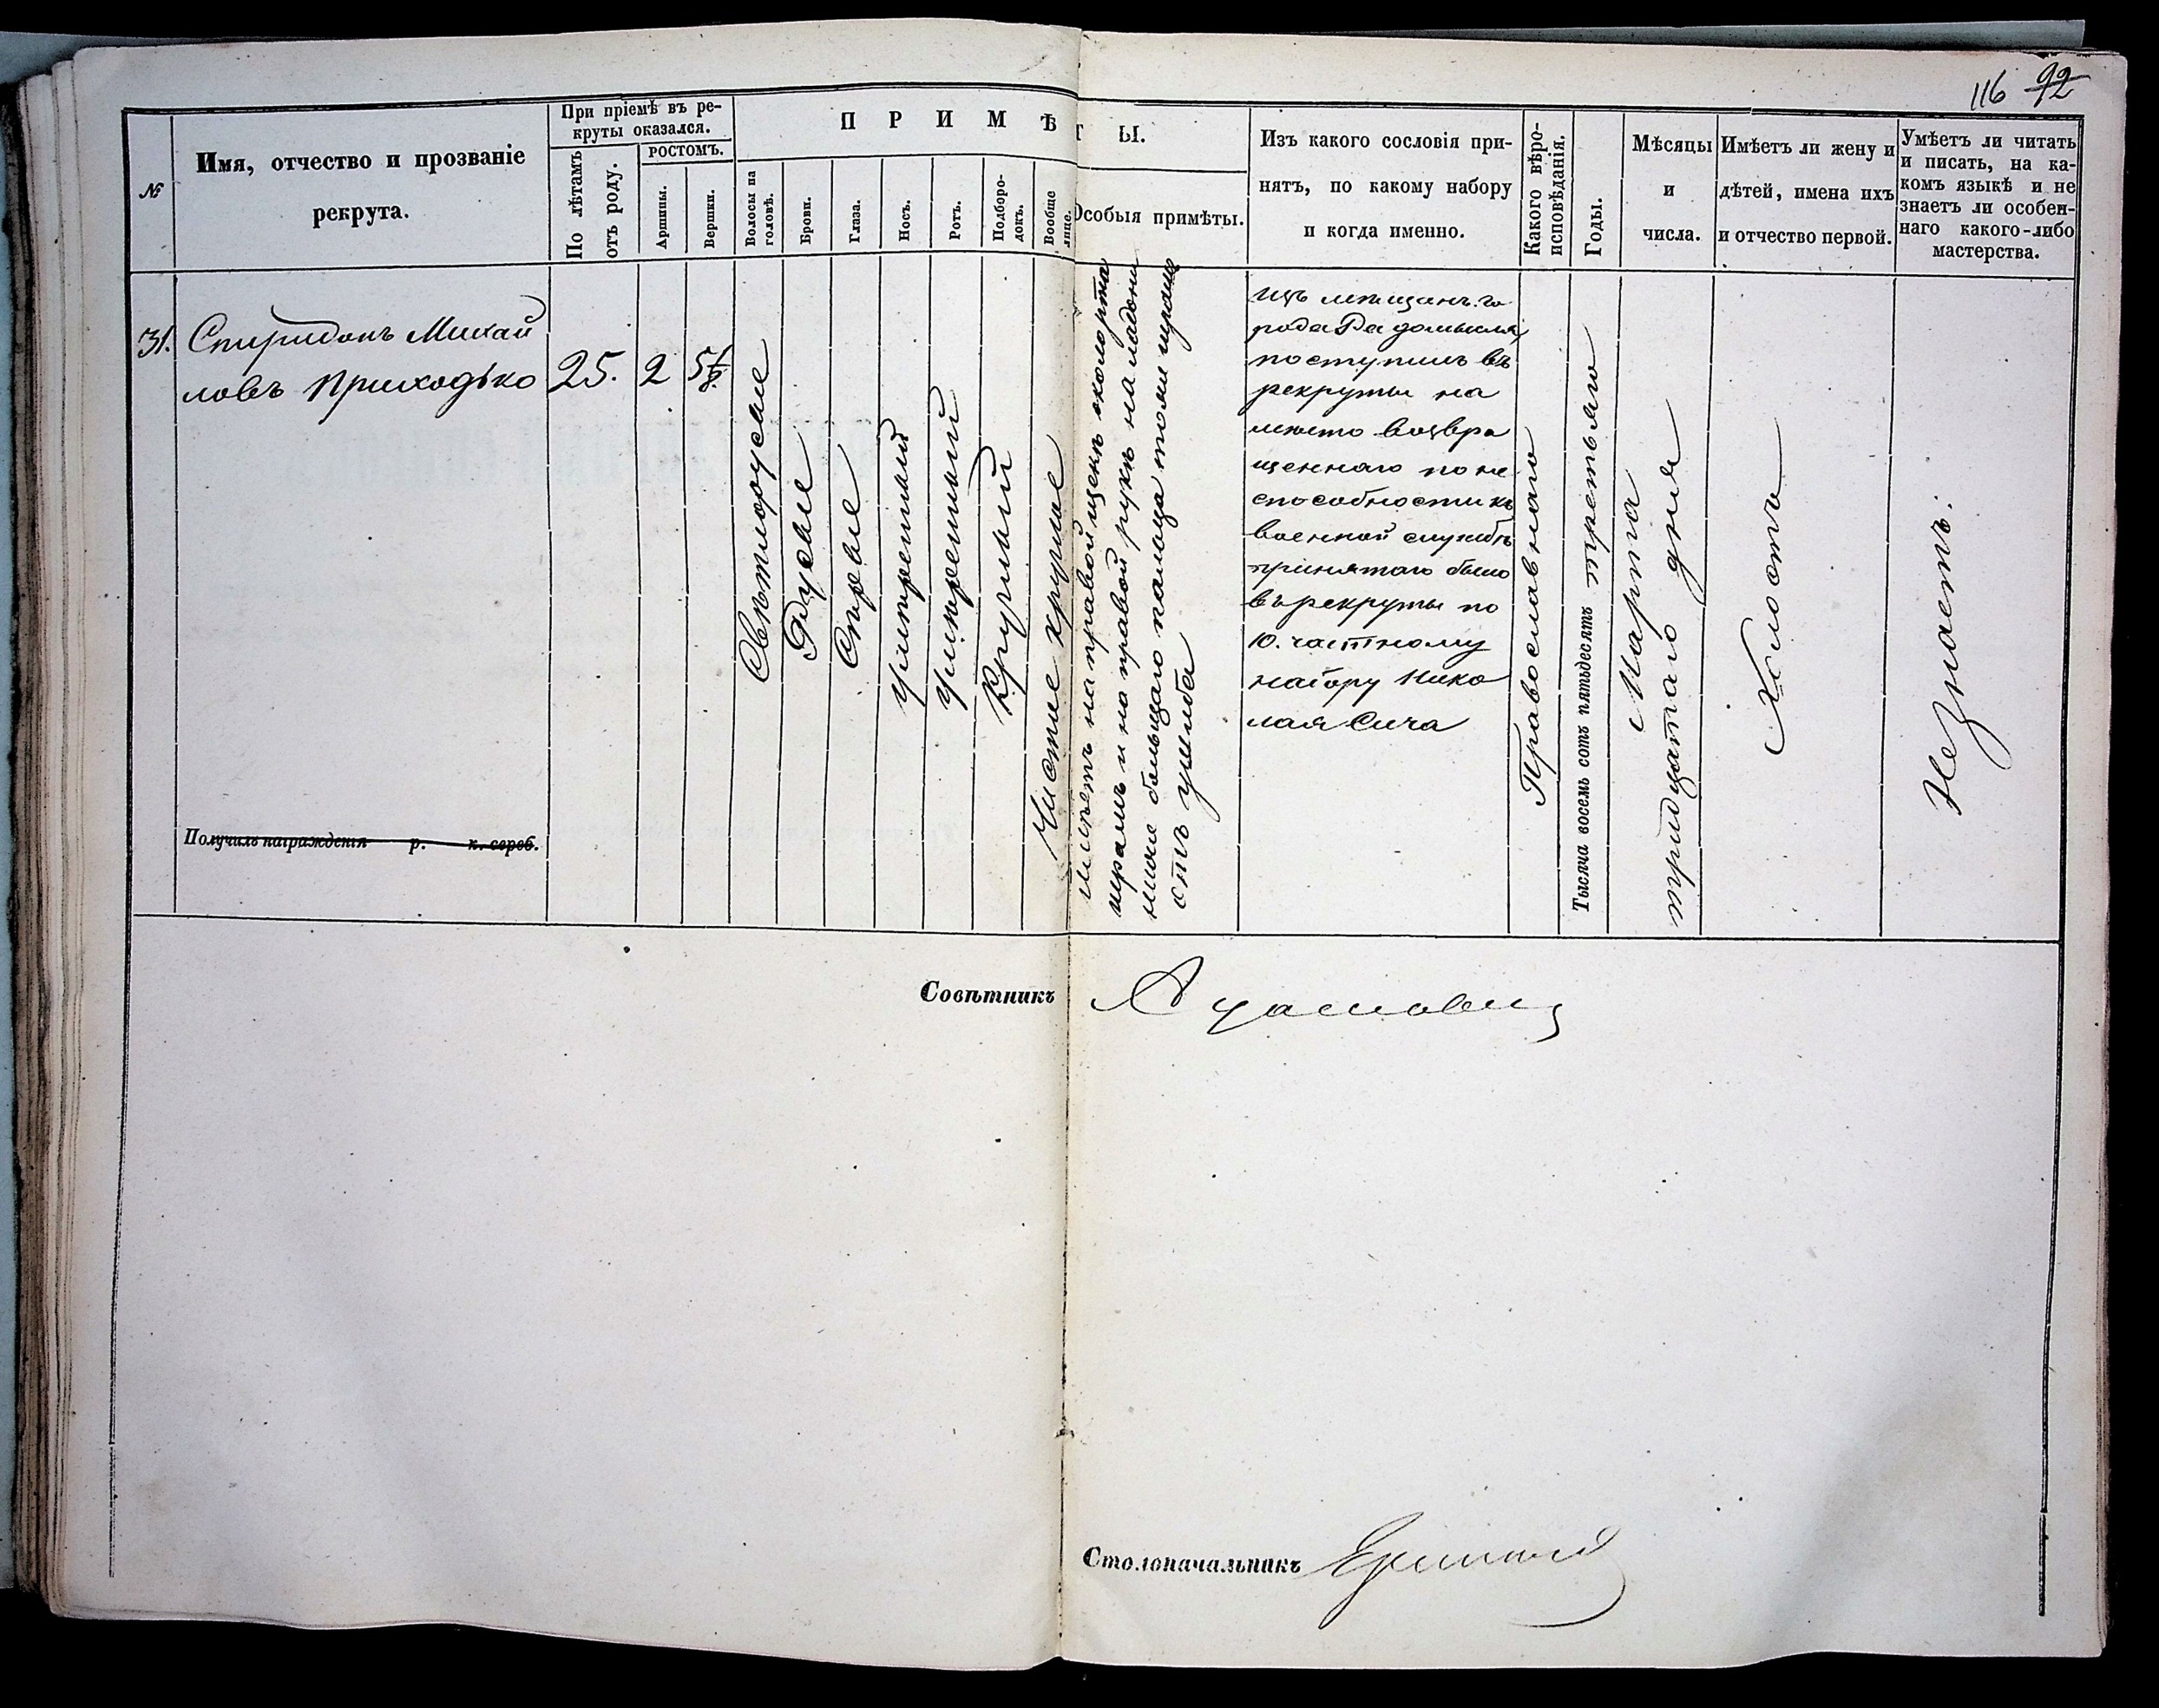 116 92
№
Имя, отчество и прозваніе
рекрута.
При пріемѣ въ ре-
круты оказался.
По лѣтамъ
отъ роду.
РОСТОМЪ.
Аршины.
Вершки.
ПРИМѢТЫ.
Волосы на
головѣ.
Брови.
Глаза.
Носъ.
Ротъ.
Подборо-
докъ.
Вообще
лице.
Особыя примѣты.
Изъ какого сословія при-
нятъ, по какому набору
и когда именно.
Какого вѣро-
исповѣданія.
Годы.
Мѣсяцы
и
числа.
Имѣетъ ли жену и
дѣтей, имена ихъ
и отчество первой.
Умѣетъ ли читать
и писать, на ка-
комъ языкѣ и не
знаетъ ли особен-
наго какого-либо
мастерства.
31.
Спиридонъ Михай
ловъ Приходько
25.
2
5 1/8.
Свѣтлорусые
Русые
Сѣрые
умѣренный
умѣренный
Круглый
Чистое круглое
имѣетъ на правой щекѣ около рта
шрамъ и на правой рукѣ на ладони
ниже большаго пальца тоже шрамъ
отъ ушиба
изъ мѣщанъ го
рода Радомысля,
поступилъ въ
рекруты на
мѣсто возвра
щеннаго по не
способности къ
военной службѣ
принятаго было
въ рекруты по
10. частному
набору Нико
лая Сича
Православнаго
Тысяча восемь сотъ пятьдесятъ третьяго
Марта
тридцатаго дня
Холостъ
Незнаетъ.
Получилъ награжденія р. к. сереб.
Совѣтникъ
Столоначальникъ